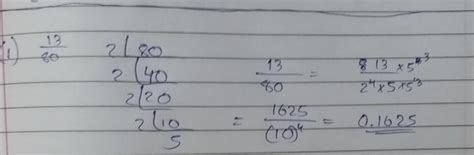 i) 13/80
2 | 80
2 | 40
2 | 20
2 | 10
5
13/80 = 13 × 5³ / 2⁴ × 5 × 5³
= 1625/(10)⁴ = 0.1625